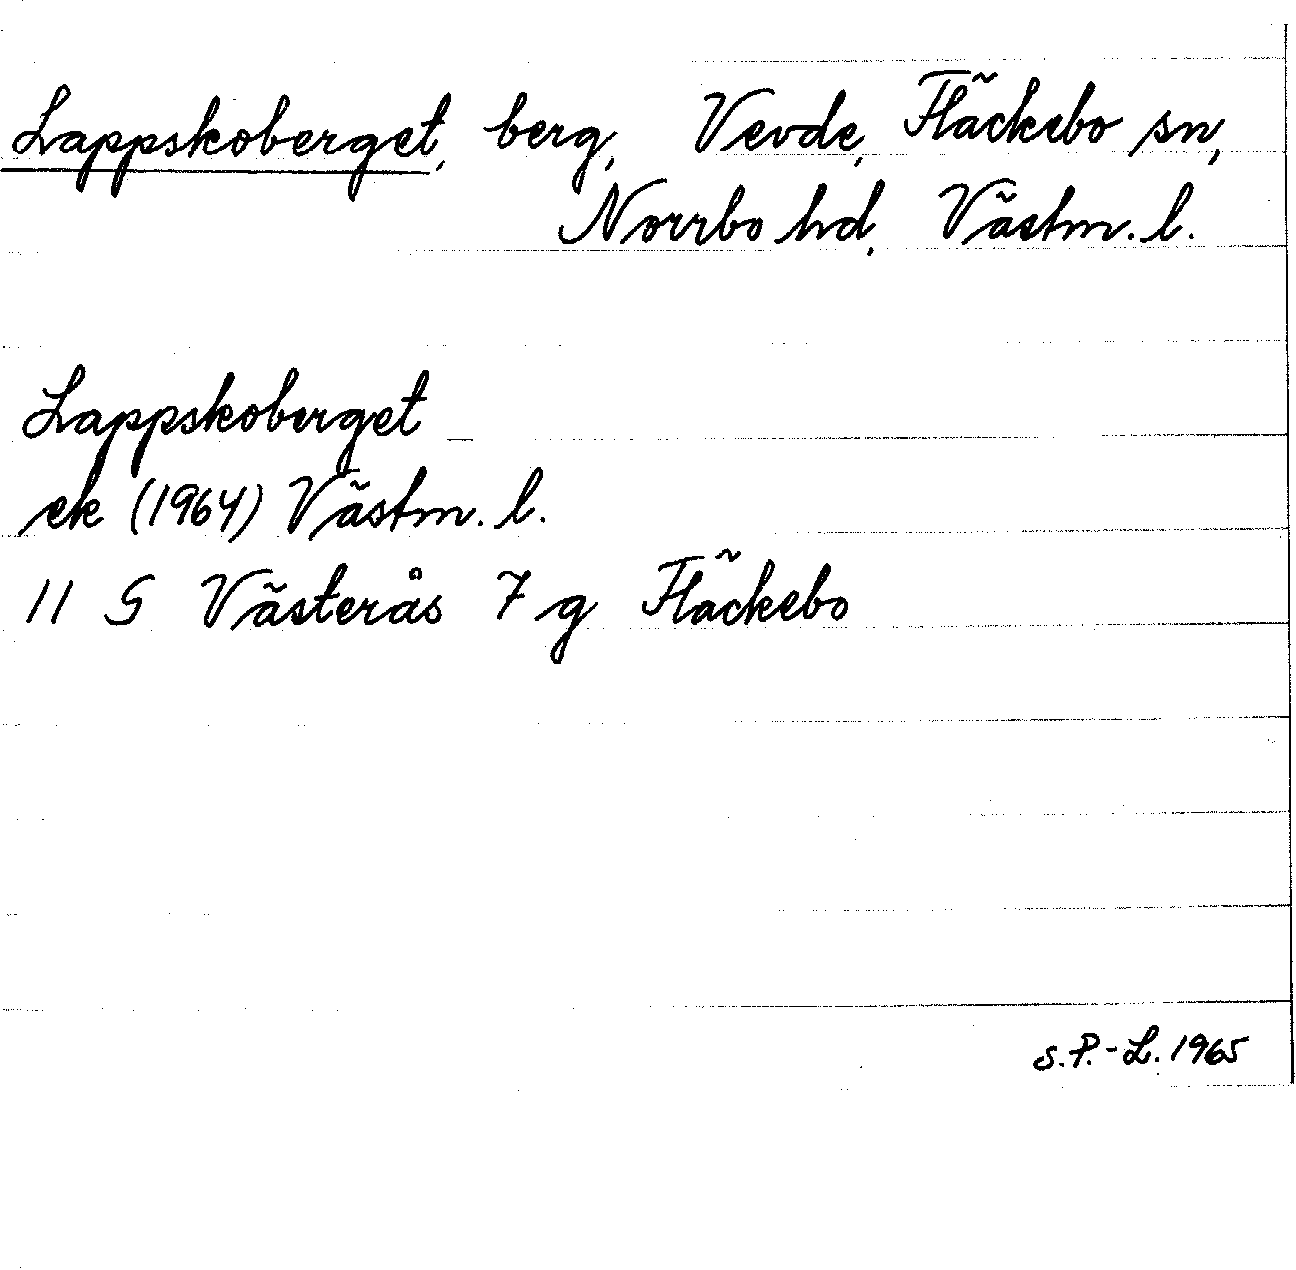 Lappskoberget, berg, Vevde, Fläckebo sn,
Norrbo hd, Västm. l.
Lappskoberget
ek (1964) Västm. l.
11 G Västerås 7 g Fläckebo
S.P.-L. 1965